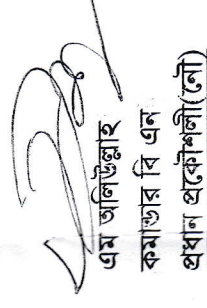 এম অলিউল্লাহ
কমান্ডার বি এন
প্রধান প্রকৌশলী(নৌ)